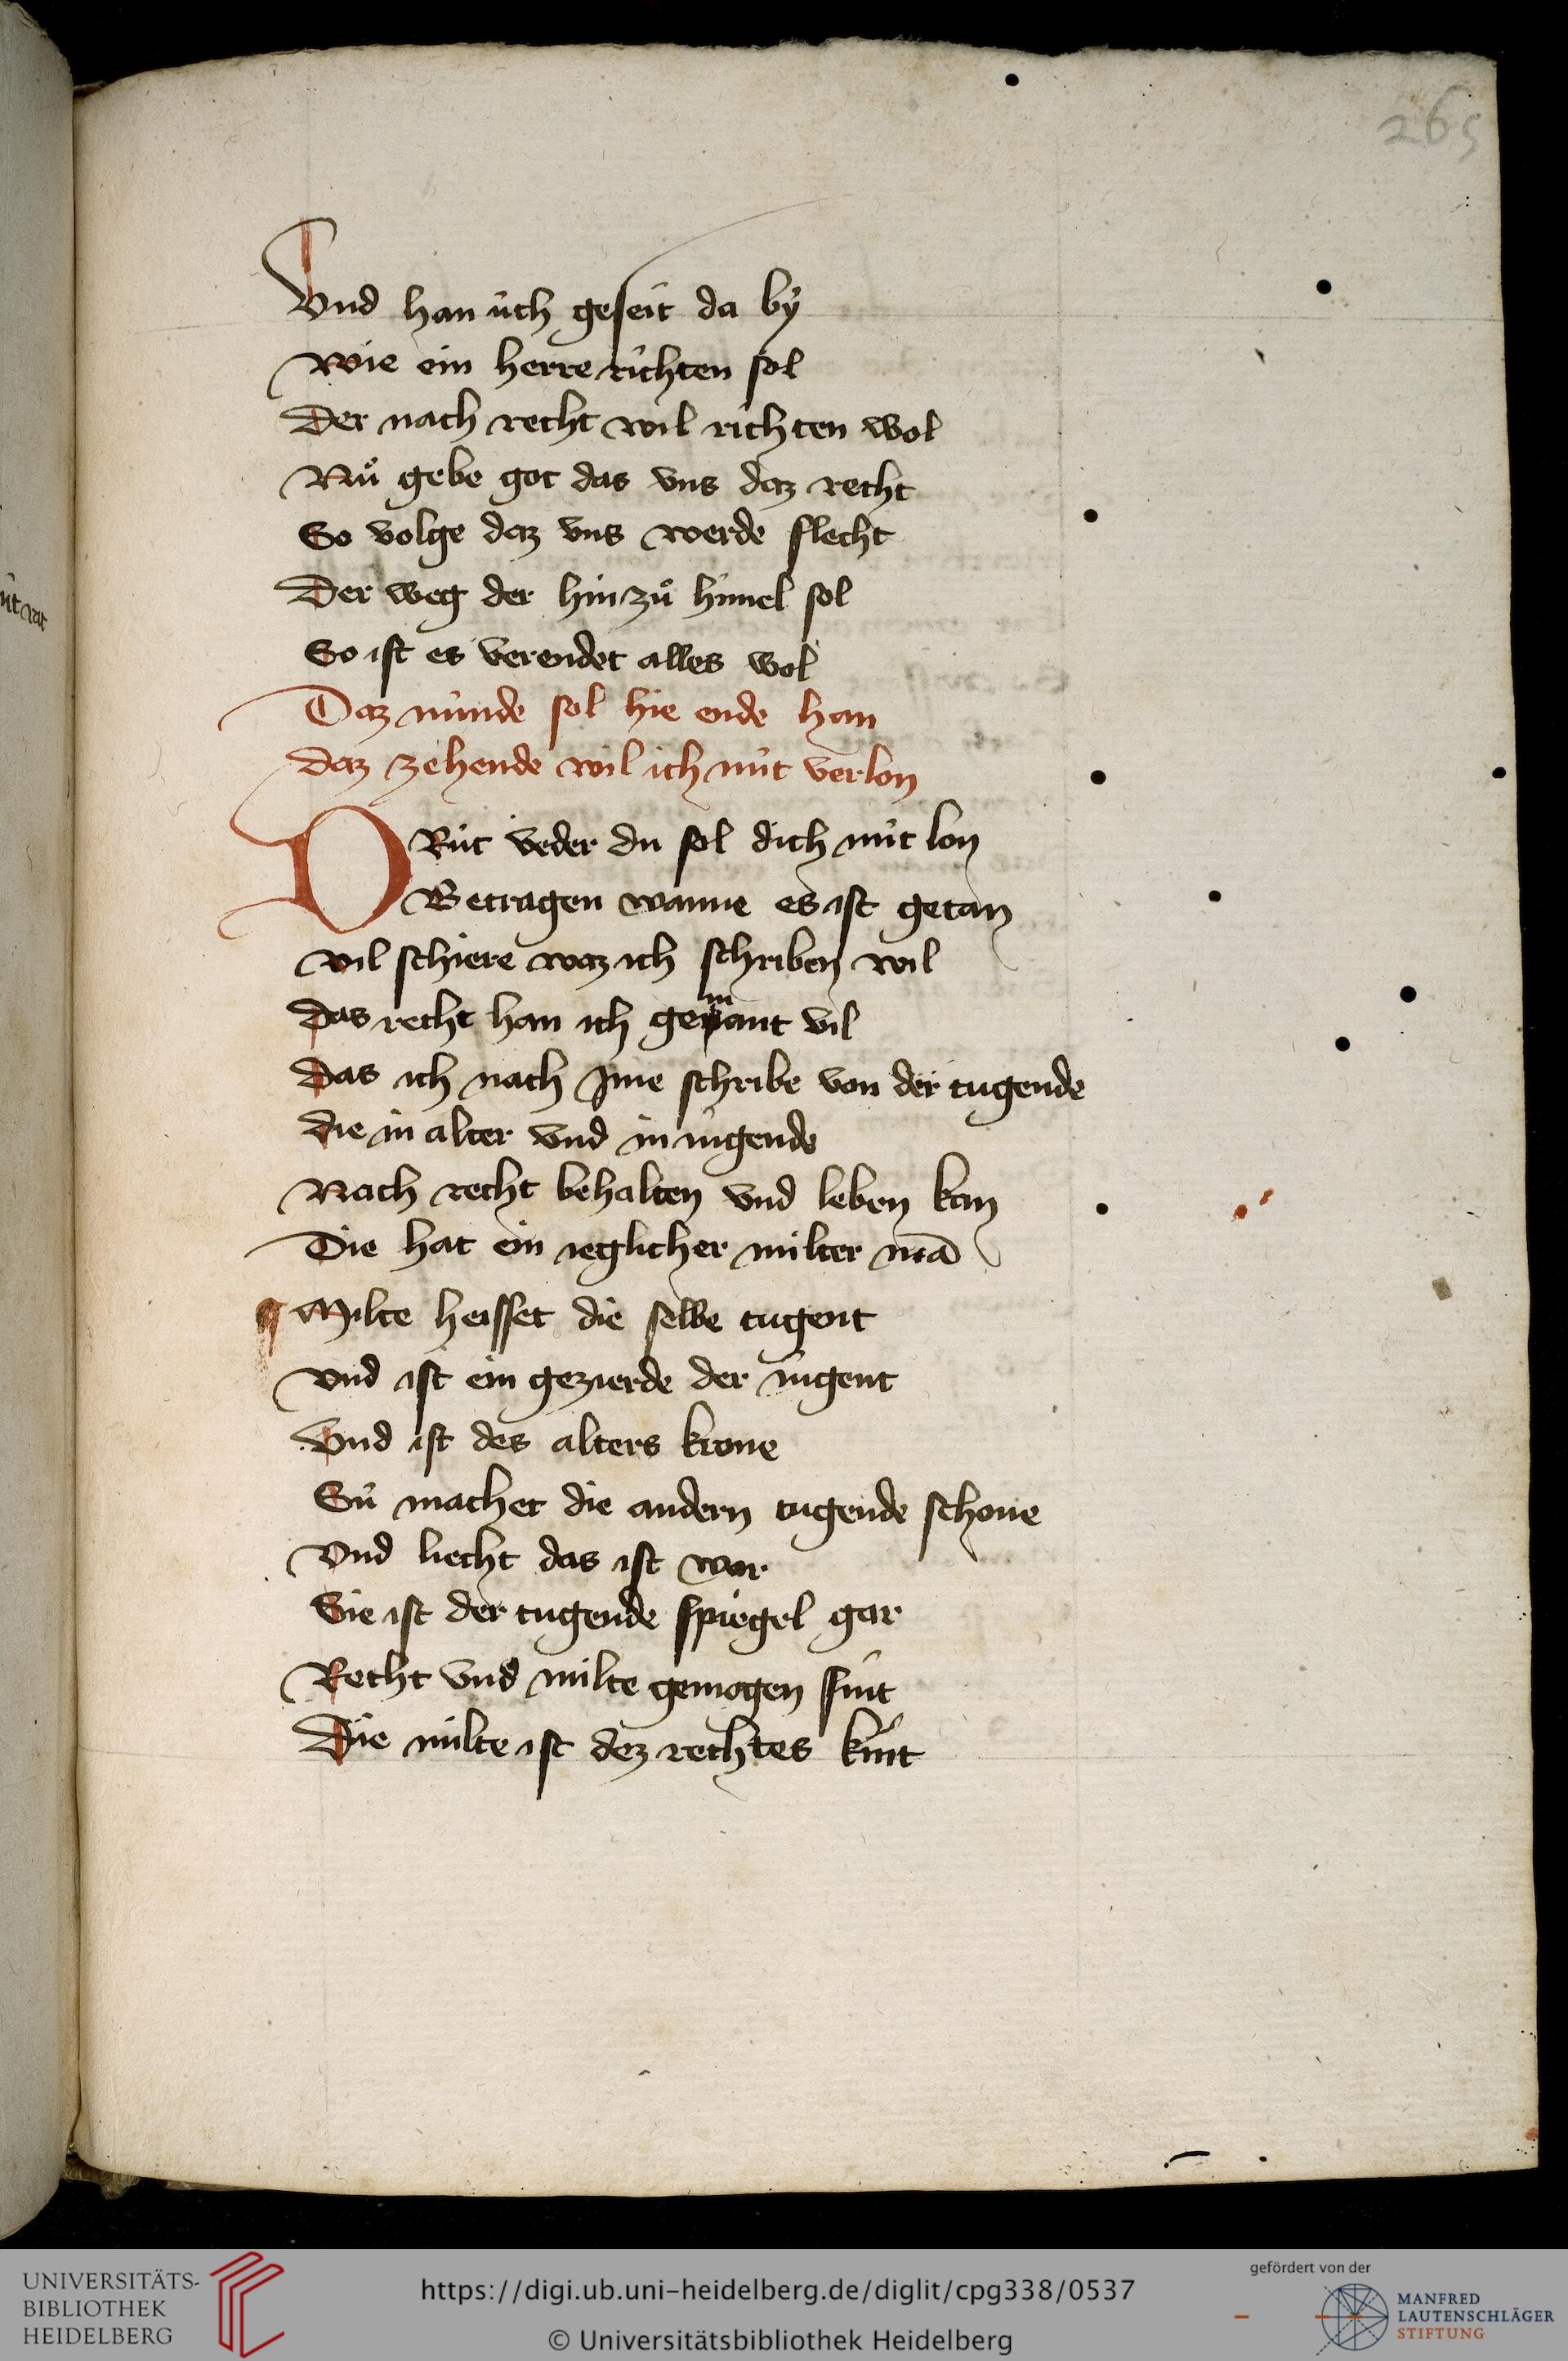 265
Vnd han uͤch geseit da by
Wie ein herre richten sol
Der nach recht wil richten wol
Nuͦ gebe got das vns daz recht
So volge daz vns werde slecht
Der weg der hin zuͦ himel sol
So ist es verendet alles wol
Daz nünde sol hie ende han
Daz zehende wil ich nüt verlon
DRüt veder du sol dich nüt lon
Betragen wanne es ist getan
Vil schiere waz ich schriben wil
Das recht han ich gemant vil
Das ich nach jme schribe von der tugende
Die in alter vnd in iugende
Nach recht behalten vnd leben kan
Die hat ein ieglicher milter mā
Milte heisset die selbe tugent
Vnd ist ein gezierde der iugent
Vnd ist des alters krone
Sü machet die andern tugende schone
Vnd liecht das ist wor
Sie ist der tugende spiegel gar
Recht vnd milte gemogen sint
Die milte ist dez rechtes kint
UNIVERSITÄTS-
BIBLIOTHEK
HEIDELBERG
https://digi.ub.uni-heidelberg.de/diglit/cpg338/0537
© Universitätsbibliothek Heidelberg
gefördert von der
MANFRED
LAUTENSCHLÄGER
STIFTUNG